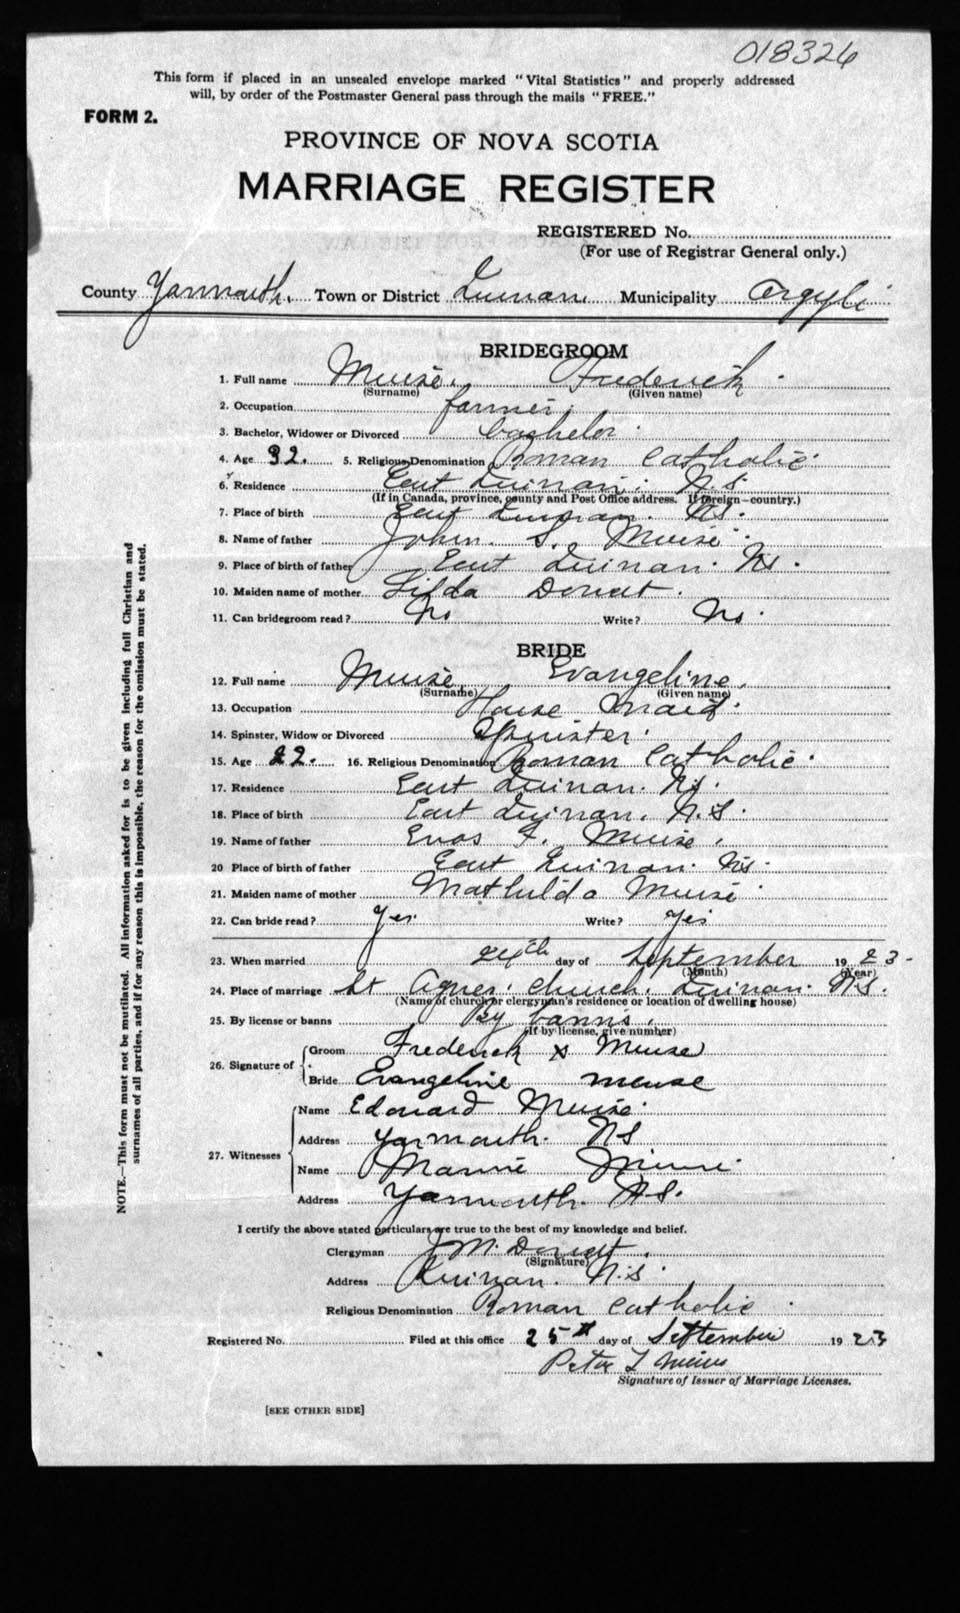 018326
This form if placed in an unsealed envelope marked "Vital Statistics" and properly addressed
will, by order of the Postmaster General pass through the mails "FREE."
FORM 2.
PROVINCE OF NOVA SCOTIA
MARRIAGE REGISTER
REGISTERED No.
(For use of Registrar General only.)
County Yarmouth. Town or District Quinan. Municipality Argyle
BRIDEGROOM
1. Full name Muise, Frederick
(Surname) (Given name)
2. Occupation farmer.
3. Bachelor, Widower or Divorced bachelor.
4. Age 32. 5. Religious Denomination Roman Catholic.
6. Residence East Quinan. N.S.
(If in Canada, province, county and Post Office address. If foreign—country.)
7. Place of birth East Quinan. N.S.
8. Name of father John. S. Muise.
9. Place of birth of father East Quinan. N.S.
10. Maiden name of mother Doucet.
11. Can bridegroom read? No Write? No.
BRIDE
12. Full name Muise, Evangeline,
(Surname) (Given name)
13. Occupation House Maid.
14. Spinster, Widow or Divorced Spinster.
15. Age 22. 16. Religious Denomination Roman Catholic.
17. Residence East Quinan. N.S.
18. Place of birth East Quinan. N.S.
19. Name of father Enos F. Muise.
20 Place of birth of father East Quinan. N.S.
21. Maiden name of mother Mathilda Muise
22. Can bride read? Yes. Write? Yes
23. When married 24th day of September 1923-
(Month) (Year)
24. Place of marriage St Agnes, Church, Quinan. N.S.
(Name of church or clergyman's residence or location of dwelling house)
25. By license or banns By banns.
(If by license, give number)
26. Signature of Groom Frederick x Meuse
Bride Evangeline meuse
27. Witnesses Name Edouard Muise.
Address Yarmouth. NS
Name Mannie
Address Yarmouth. N.S.
I certify the above stated particulars are true to the best of my knowledge and belief.
Clergyman J M. Doucet.
(Signature)
Address Quinan. N.S.
Religious Denomination Roman Catholic.
Registered No. Filed at this office 25th day of September 1923
Peter L
Signature of Issuer of Marriage Licenses.
[SEE OTHER SIDE]
NOTE.—This form must not be mutilated. All information asked for is to be given including full Christian and
surnames of all parties, and if for any reason this is impossible, the reason for the omission must be stated.